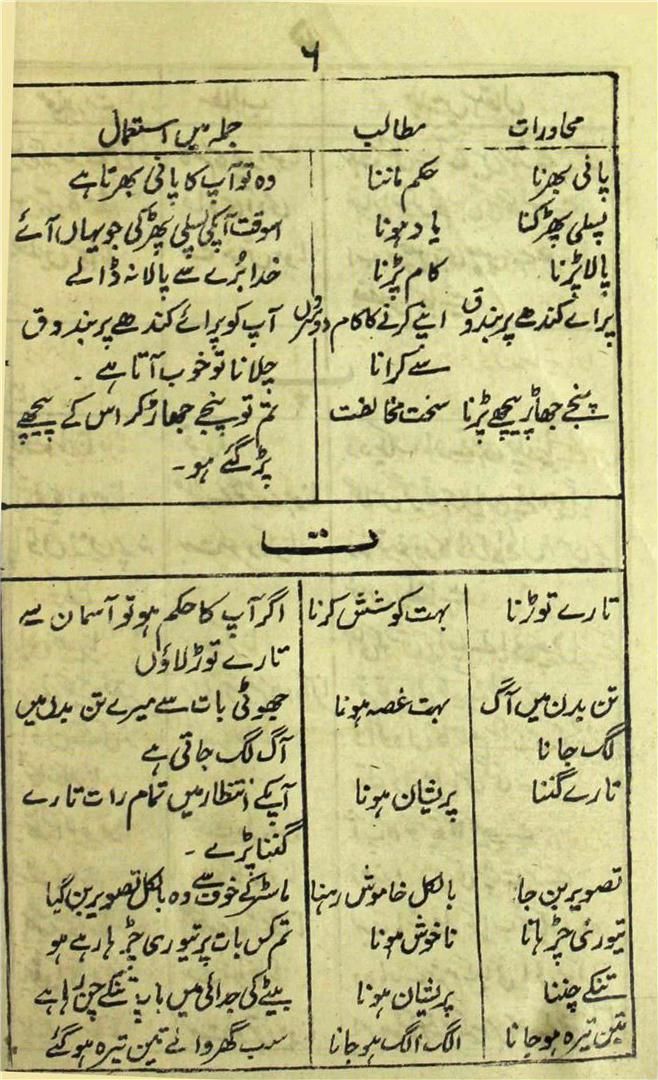 ۶
محاورات مطالب جملہ میں استعمال
پانی بھرنا حکم ماننا وہ تو آپ کا پانی بھرتا ہے
پسلی پھڑکنا یاد ہونا اسوقت آپکی پسلی پھڑکی جو یہاں آئے
پالا پڑنا کام پڑنا خدا بُرے سے پالا نہ ڈالے
پرائے کندھے پر بندوق اپنے کرنے کا کام دوسروں آپ کو پرائے کندھے پر بندوق
سے کرانا چلانا تو خوب آتا ہے ۔
پنجے جھاڑ پیچھے پڑنا سخت مخالفت تم تو پنجے جھاڑ کر اس کے پیچھے
پڑ گئے ہو۔
ت
تارے توڑنا بہت کوشش کرنا اگر آپ کا حکم ہو تو آسمان سے
تارے توڑ لاؤں
تن بدن میں آگ بہت غصہ ہونا جھوٹی بات سے میرے تن بدن میں
لگ جانا آگ لگ جاتی ہے
تارے گننا پریشان ہونا آپکے انتظار میں تمام رات تارے
گننا پڑے ۔
تصویر بن جا بالکل خاموش رہنا ماسٹر کے خوف سے وہ بالکل تصویر بن گیا
تیوری چڑہانا ناخوش ہونا تم کس بات پر تیوری چڑہا رہے ہو
تنکے چننا پریشان ہونا بیٹے کی جدائی میں باپ تنکے چن رہا ہے
تین تیرہ ہو جانا الگ الگ ہو جانا سب گھر والے تین تیرہ ہو گئے